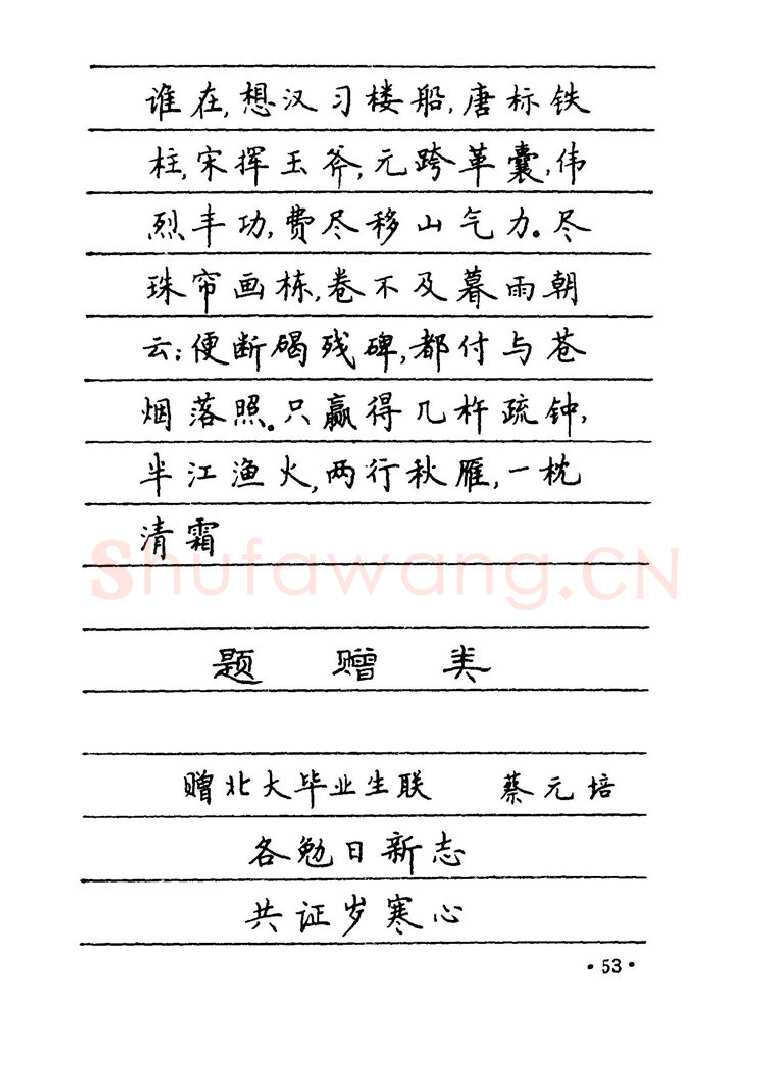 谁在，想汉习楼船，唐标铁
柱，宋挥玉斧，元跨革囊，伟
烈丰功，费尽移山气力。尽
珠帘画栋，卷不及暮雨朝
云；便断碣残碑，都付与苍
烟落照。只赢得几杵疏钟，
半江渔火，两行秋雁，一枕
清霜
shufawang.CN
题 赠 类
赠北大毕业生联 蔡元培
各勉日新志
共证岁寒心
·53·